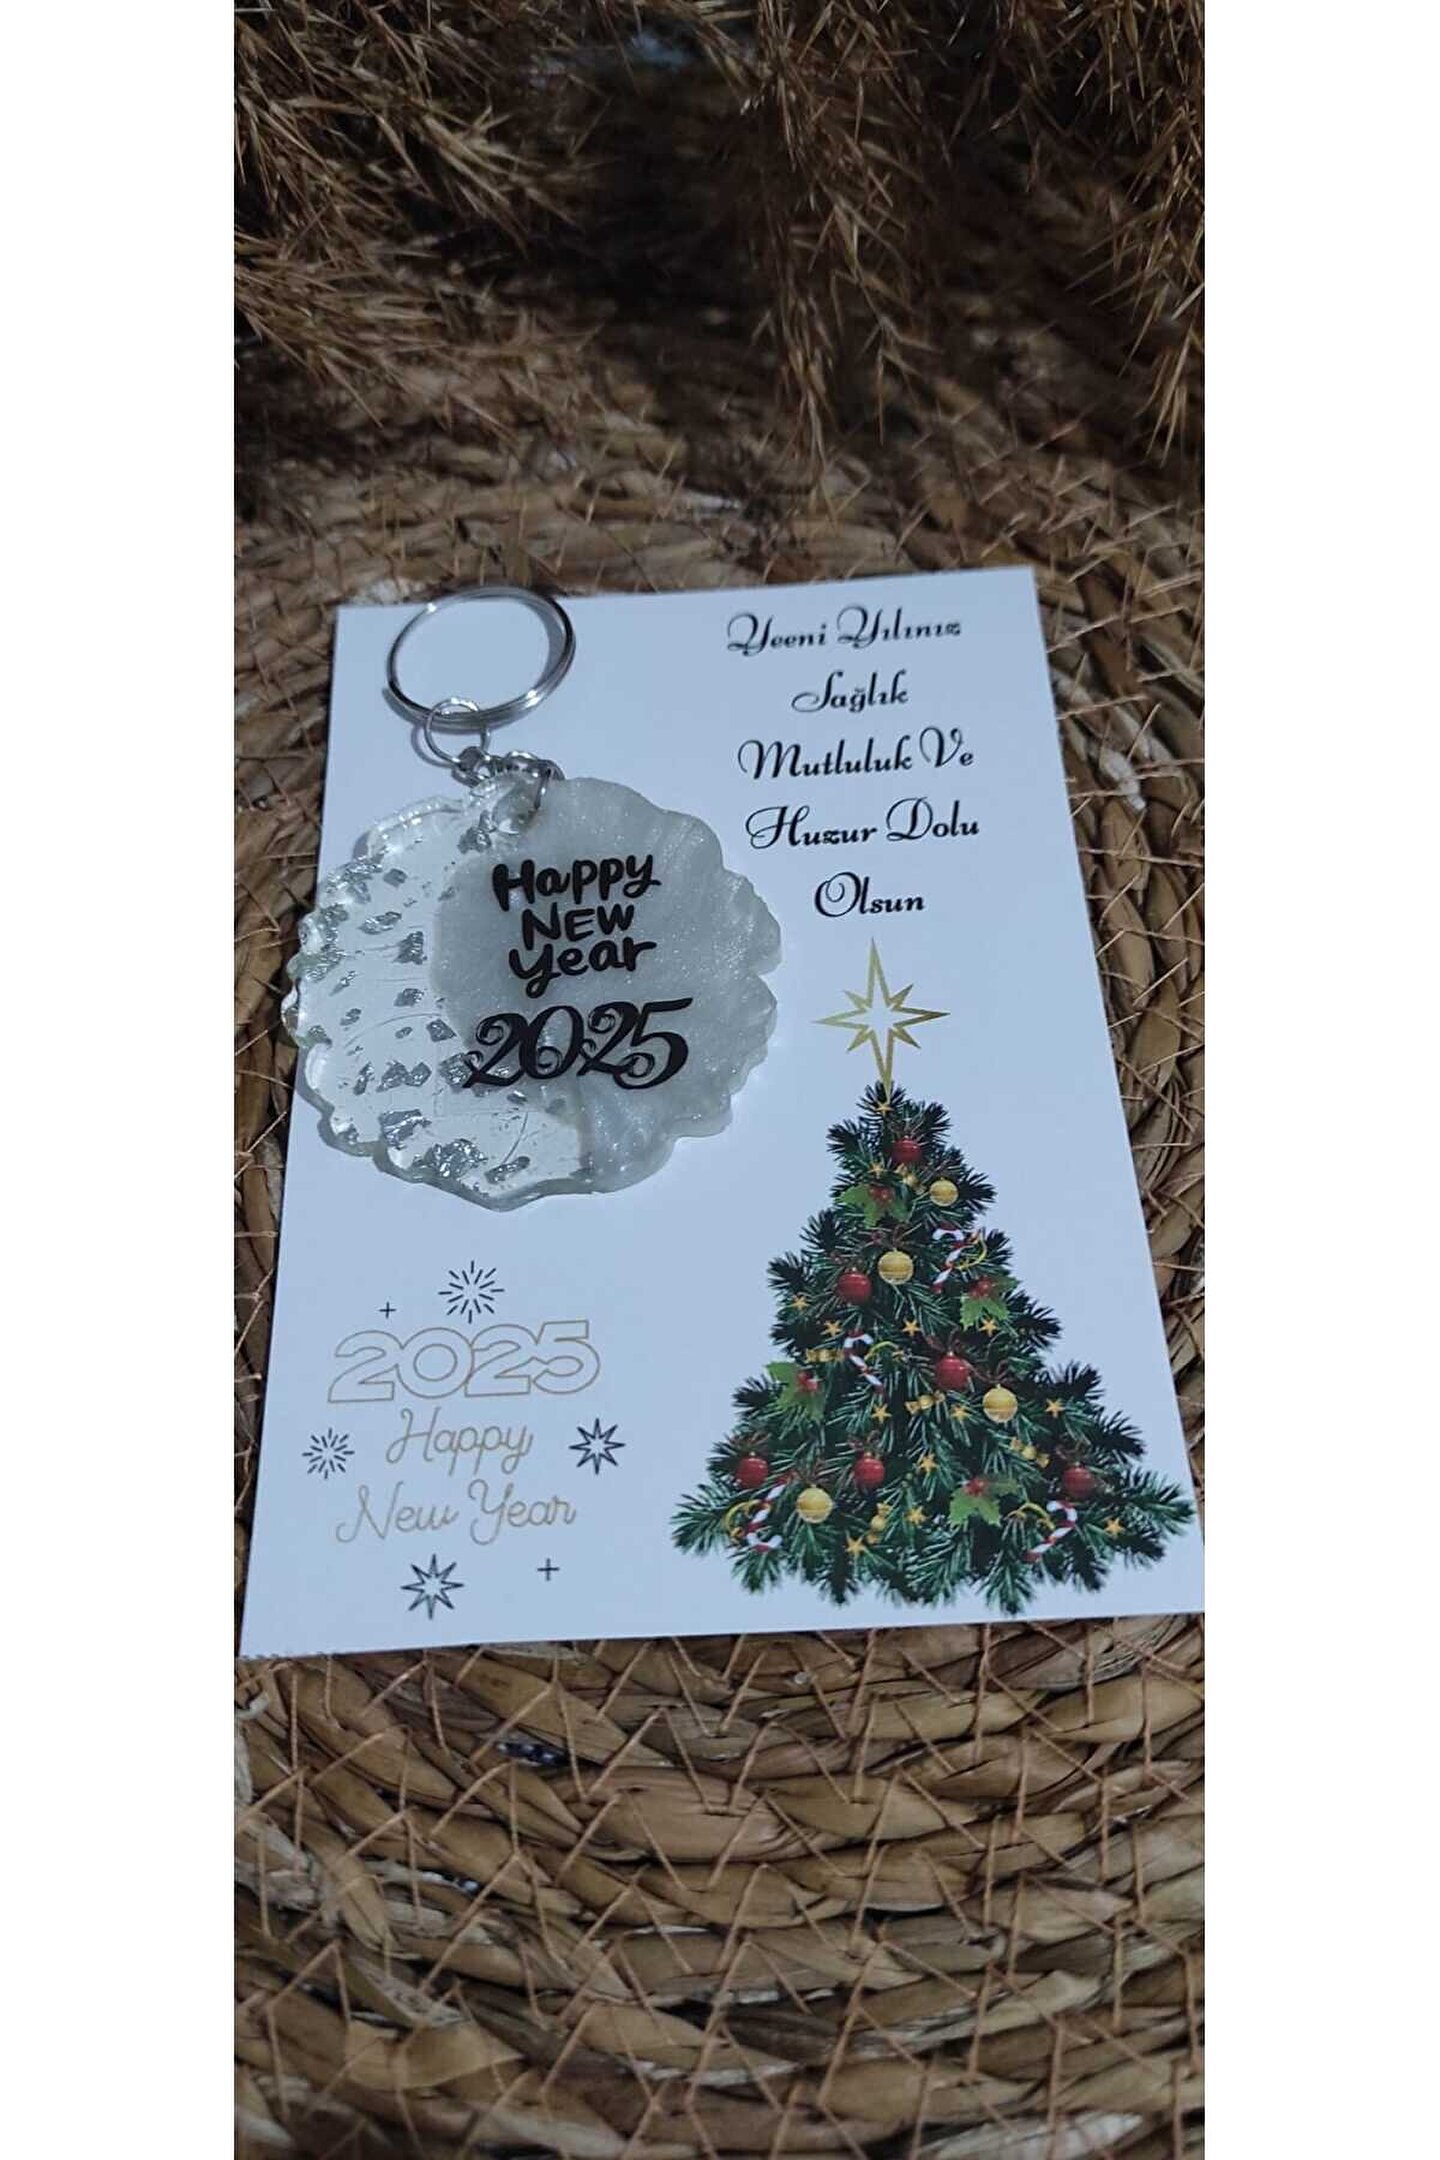 Yeeni Yılınız
Sağlık
Mutluluk Ve
Huzur Dolu
Olsun
Happy
NEW
Year
2025
2025
Happy
New Year